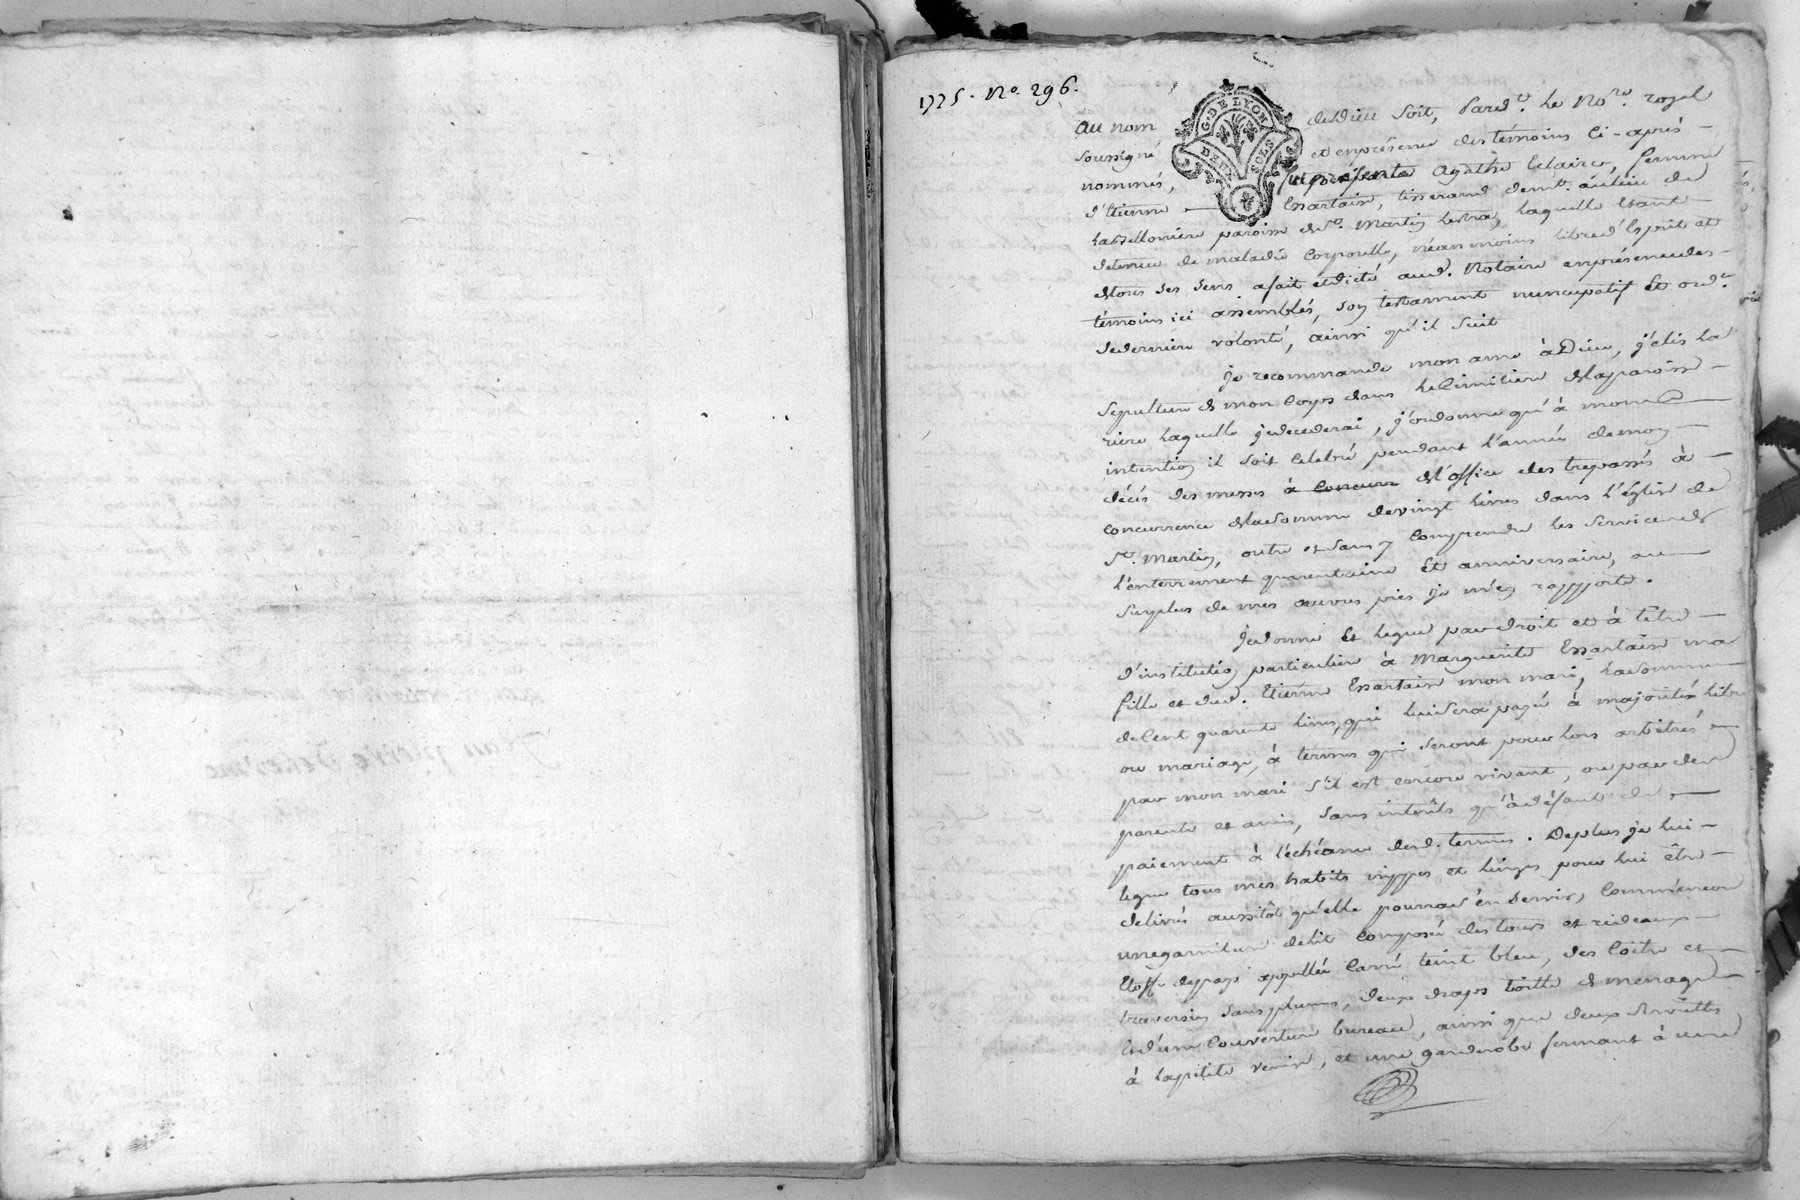 1775. No. 296.
G. DE LYON
DEUX SOLS
au nom de Dieu soit, Pard.t le No.re royal
soussigné et enprésence des témoins ci-après
nommés, fut présente Agathe Eclaire, femme
d'Etienne Essartain, tisserand dem.t au lieu de
paroisse de St. Martin Lestra, laquelle étant
detenue de maladie corporelle, néanmoins libre d'Esprit et
detous ses sens afait et dicté aud. Notaire enprésence des
témoins ici assemblés, son testament nuncupatif et ord.re
de derniere volonté, ainsi qu'il suit
je recommande mon ame à Dieu, j'élis la
sepulture de mon Corps dans le Cimitiere delaparoisse
riere laquelle jedecederai, j'ordonne qu'à mon
intention il soit Celebré pendant l'année demon
décés des messes à concurr del'office des trepassés à
concurrence delasomme devingt livres dans l'église de
St. Martin, outre et sans y comprendre les services de
l'enterrement quarentaine et anniversaire, au
surplus de mes œuvres pies je m'en rapporte.
Jedonne et legue par droit et à titre
d'institution particuliere à Marguerite Essartain ma
fille et dud. Etienne Essartain mon mari, lasomme
deCent quarente livres, qui luisera payé à majorité
ou mariage, à termes qui seront pour lors arbitrés
par mon mari s'il est encore vivant, ou par des
parents et amis, sans intérêts qu'àdéfaut de
paiement à l'échéance desd. termes. Deplus je lui
legue tous mes habits nippes et linges pour lui être
delivrés aussitôt qu'elle pourra s'en servir, Comm'encor
unegarniture delit composée des tours et rideaux
Etoffe depays appellée Carré teint bleu, des Coitre et
traversin sans plumes, deux draps toille de menage
Et d'une Couverture bureau, ainsi que deux serviettes
à lapetite venise, et une garderobe fermant à une